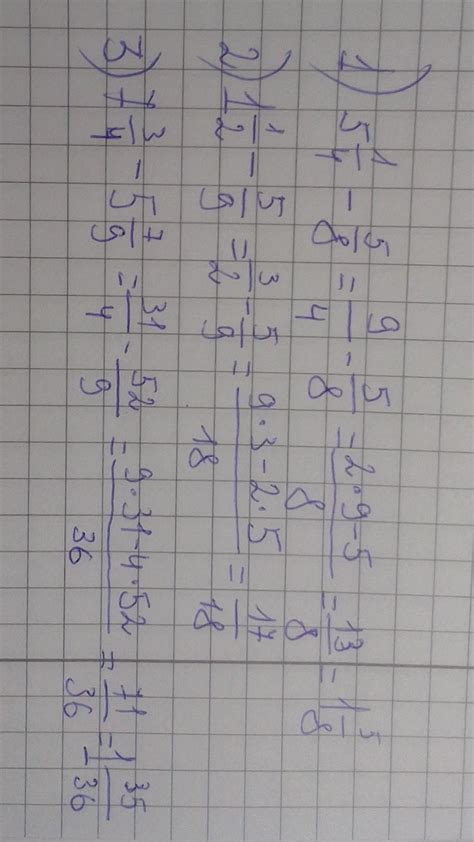 1) 5 1/4 - 5/8 = 9/4 - 5/8 = 2·9-5/8 = 13/8 = 1 5/8
2) 1 1/2 - 5/9 = 3/2 - 5/9 = 9·3-2·5/18 = 17/18
3) 7 3/4 - 5 7/9 = 31/4 - 52/9 = 9·31-4·52/36 = 71/36 = 1 35/36